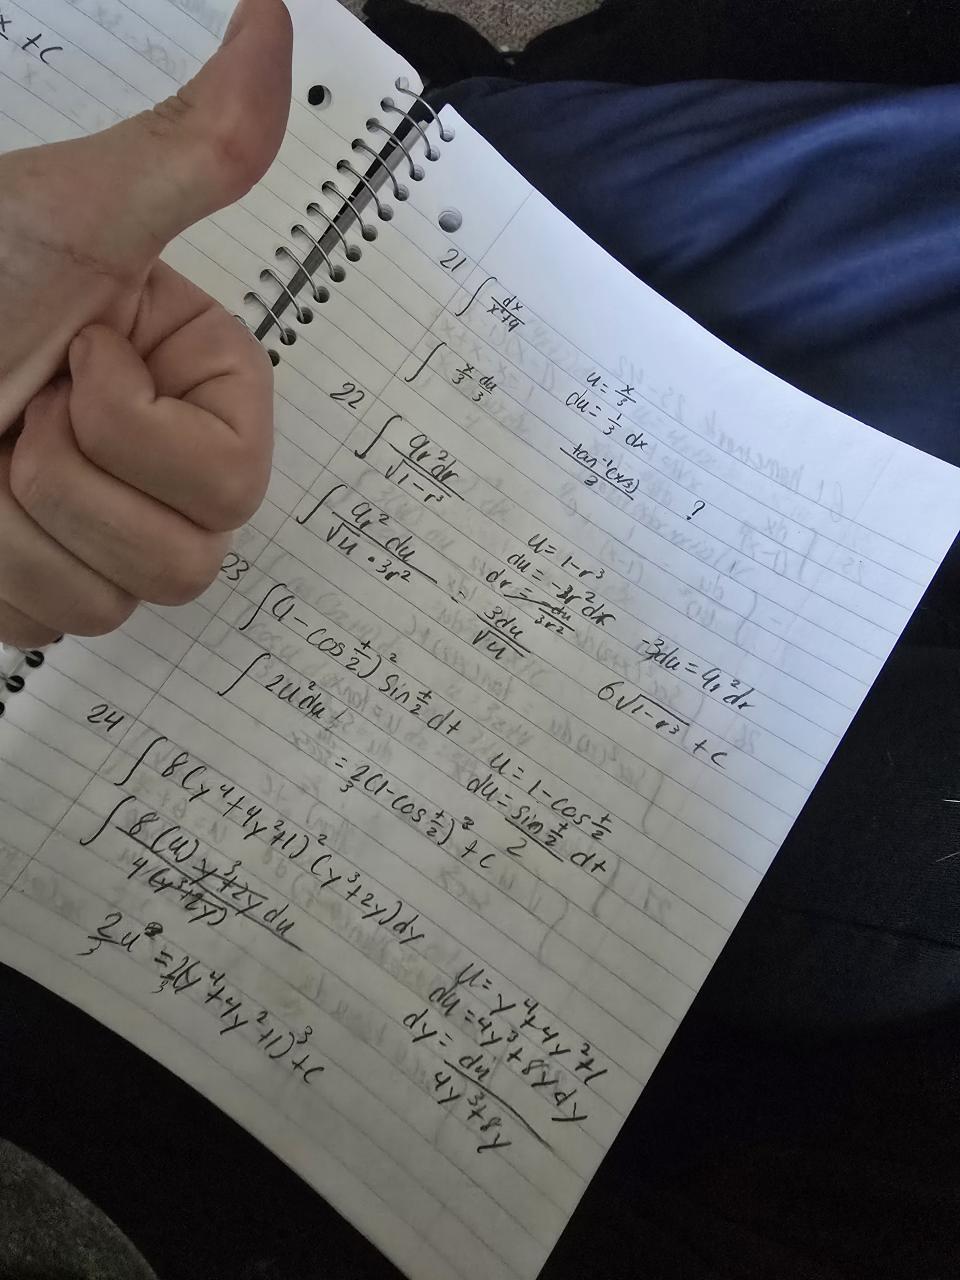 x + c
21
∫ dx/(x²+9)
∫ x/3 du/3
u = x/3
du = 1/3 dx
tan⁻¹(x/3)/3 ?
22
∫ 9r²dr/√(1-r³)
∫ 9r² du/(√u · 3r²) = 3du/√u
u = 1-r³
du = -3r²dr
dr = -du/3r²
-3du = 9r²dr
6√(1-r³) + c
23
∫(1-cos t/2)² sin t/2 dt
∫ 2u²du
= 2/3(1-cos t/2)³ + c
u = 1-cos t/2
du = (sin t/2)/2 dt
24
∫ 8(y⁴+4y²+1)²(y³+2y)dy
∫ 8(u) y³+2y du/4(y³+2y)
2/3 u³ = 2/3(y⁴+4y²+1)³ + c
u = y⁴+4y²+1
du = 4y³+8y dy
dy = du/(4y³+8y)